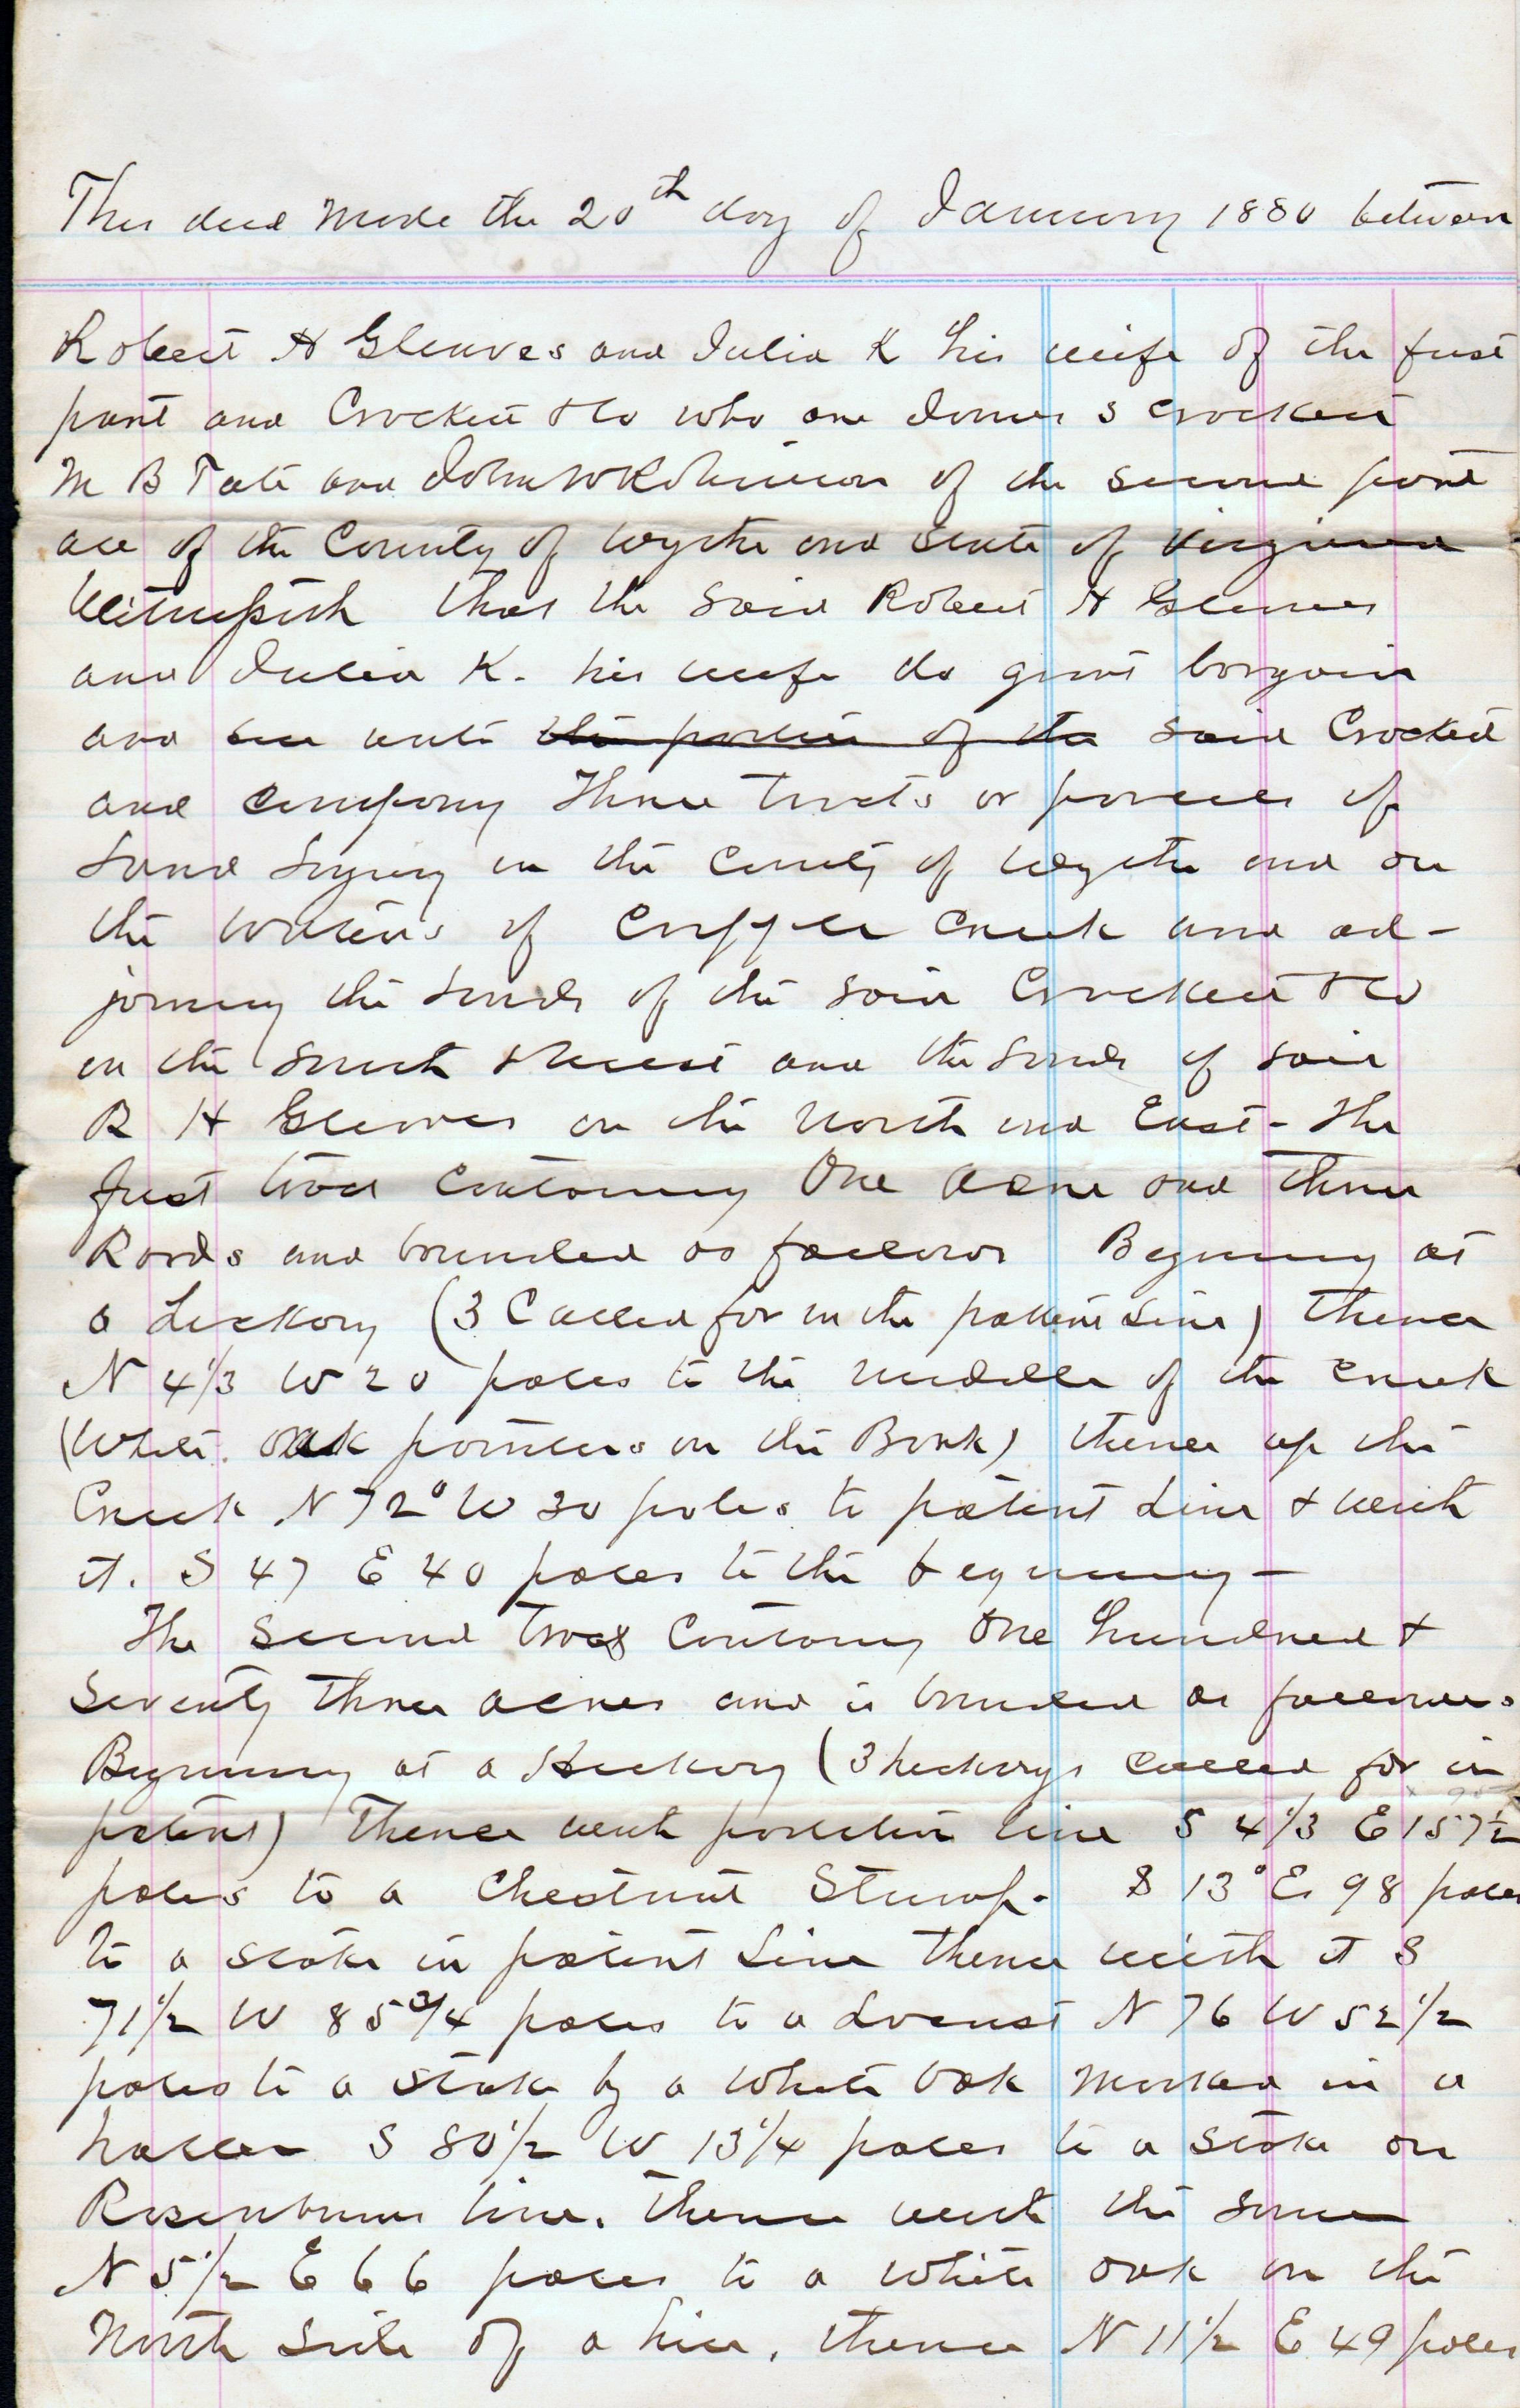 This deed made the 20th day of January 1880 between
Robert H Gleaves and Julia K his wife of the first
part and Crockett & Co who are James S Crockett
M B Tate and John W Robinson of the second part
all of the County of Wythe and State of Virginia
Witnesseth that the said Robert H Gleaves
and Julia K. his wife do grant bargain
and sell unto the parties of the said Crockett
and Company Three tracts or parcels of
Land Lying in the County of Wythe and on
the waters of Cripple Creek and ad-
joining the Lands of the said Crockett & Co
on the South & West and the Lands of said
R H Gleaves on the North and East - The
first tract containing One acre and three
Roods and bounded as follows Begining at
a Hickory (3 Called for in the patent Line) thence
N 4 1/3 W 20 poles to the middle of the creek
(White oak pointers on the Bank) thence up the
Creek N 72° W 30 poles to patent Line & with
it. S 47 E 40 poles to the begining -
The Second tract Containing One hundred &
Seventy three acres and is bounded as follows.
Begining at a Hickory (3 hickorys called for in
patent) Thence with line S 4 1/3 E 157 1/2
poles to a Chestnut Stump. S 13° E 98 poles
to a stake in patent Line thence with it S
71 1/2 W 85 3/4 poles to a Locust N 76 W 52 1/2
poles to a stake by a white oak marked in a
hollow S 80 1/2 W 13 1/4 poles to a stake on
line. thence with the same
N 5 1/2 E 66 poles to a white oak on the
North Side of a hill, thence N 11 1/2 E 49 poles